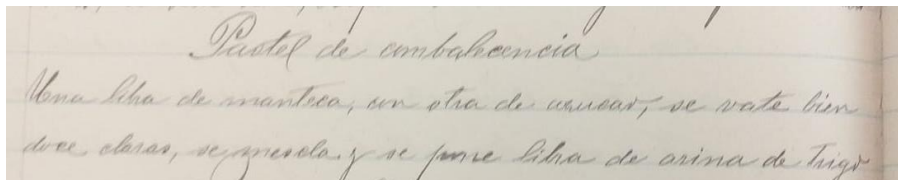 Pastel de combalecencia
Una libra de manteca, con otra de azucar, se vate bien
doce claras, se mescla y se pone libra de arina de Trigo